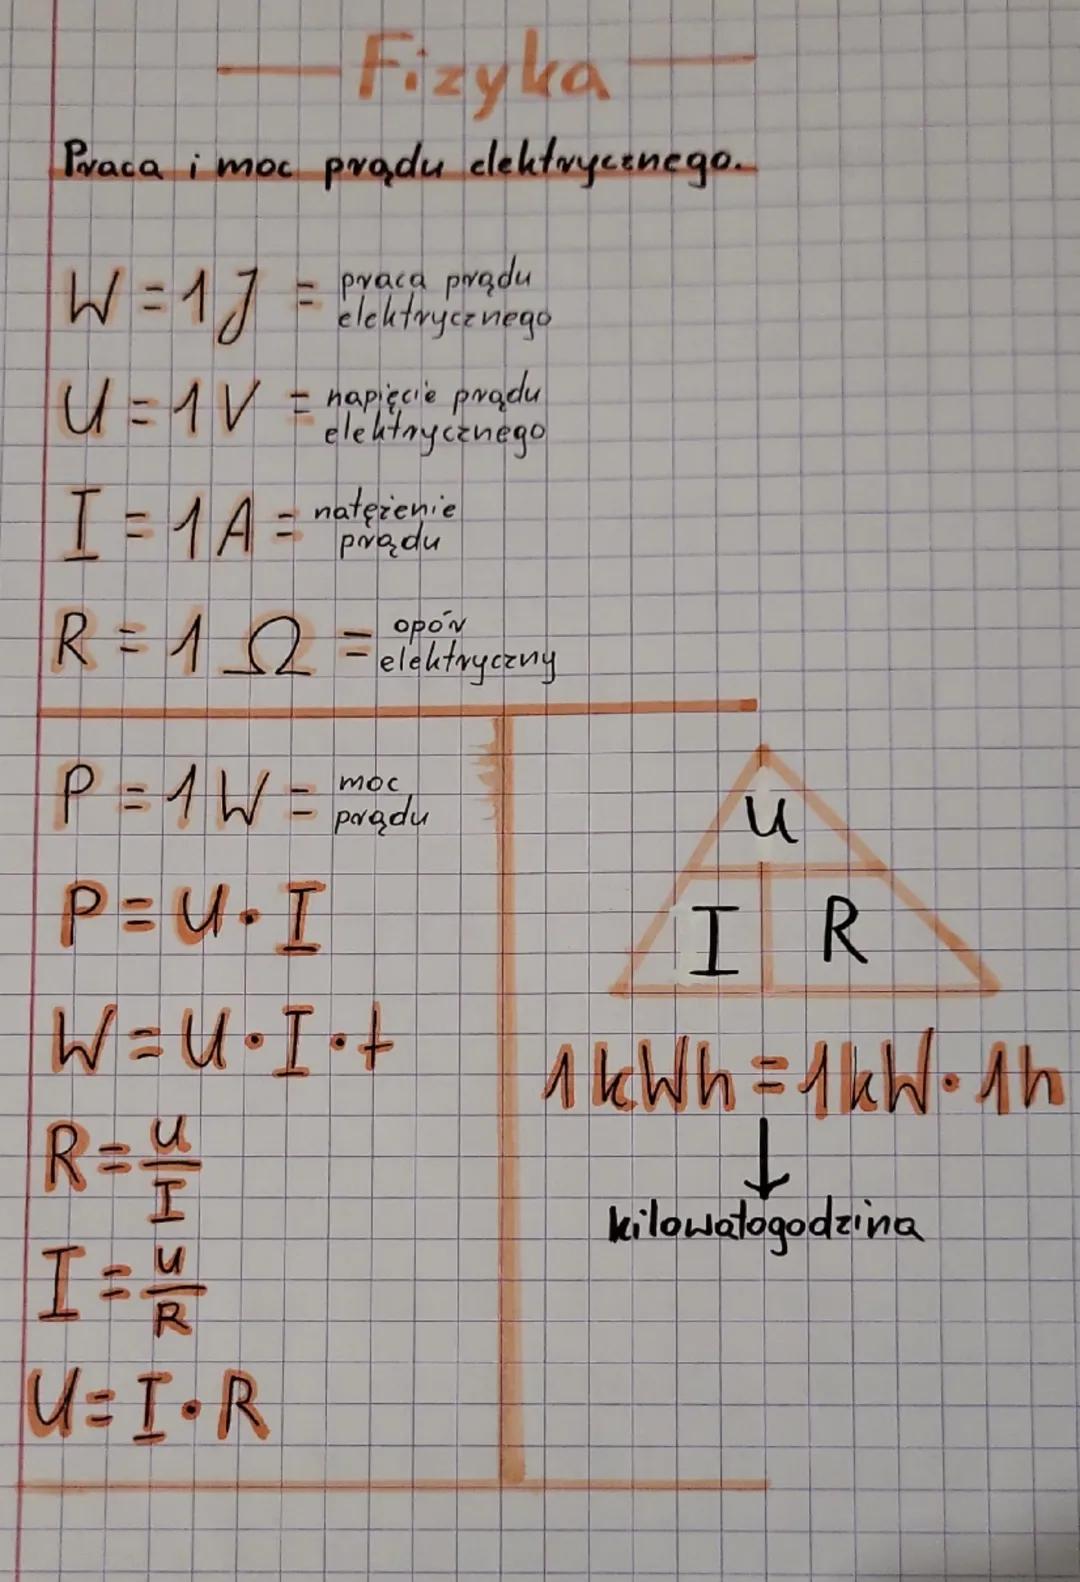 Fizyka
Praca i moc prądu elektrycznego.
W = 1 J = praca prądu
elektrycznego
U = 1 V = napięcie prądu
elektrycznego
I = 1 A = natężenie
prądu
R = 1 Ω = opór
elektryczny
P = 1 W = moc
prądu
P = U · I
W = U · I · t
R = U/I
I = U/R
U = I · R
U
I R
1 kWh = 1 kW · 1h
↓
kilowatogodzina